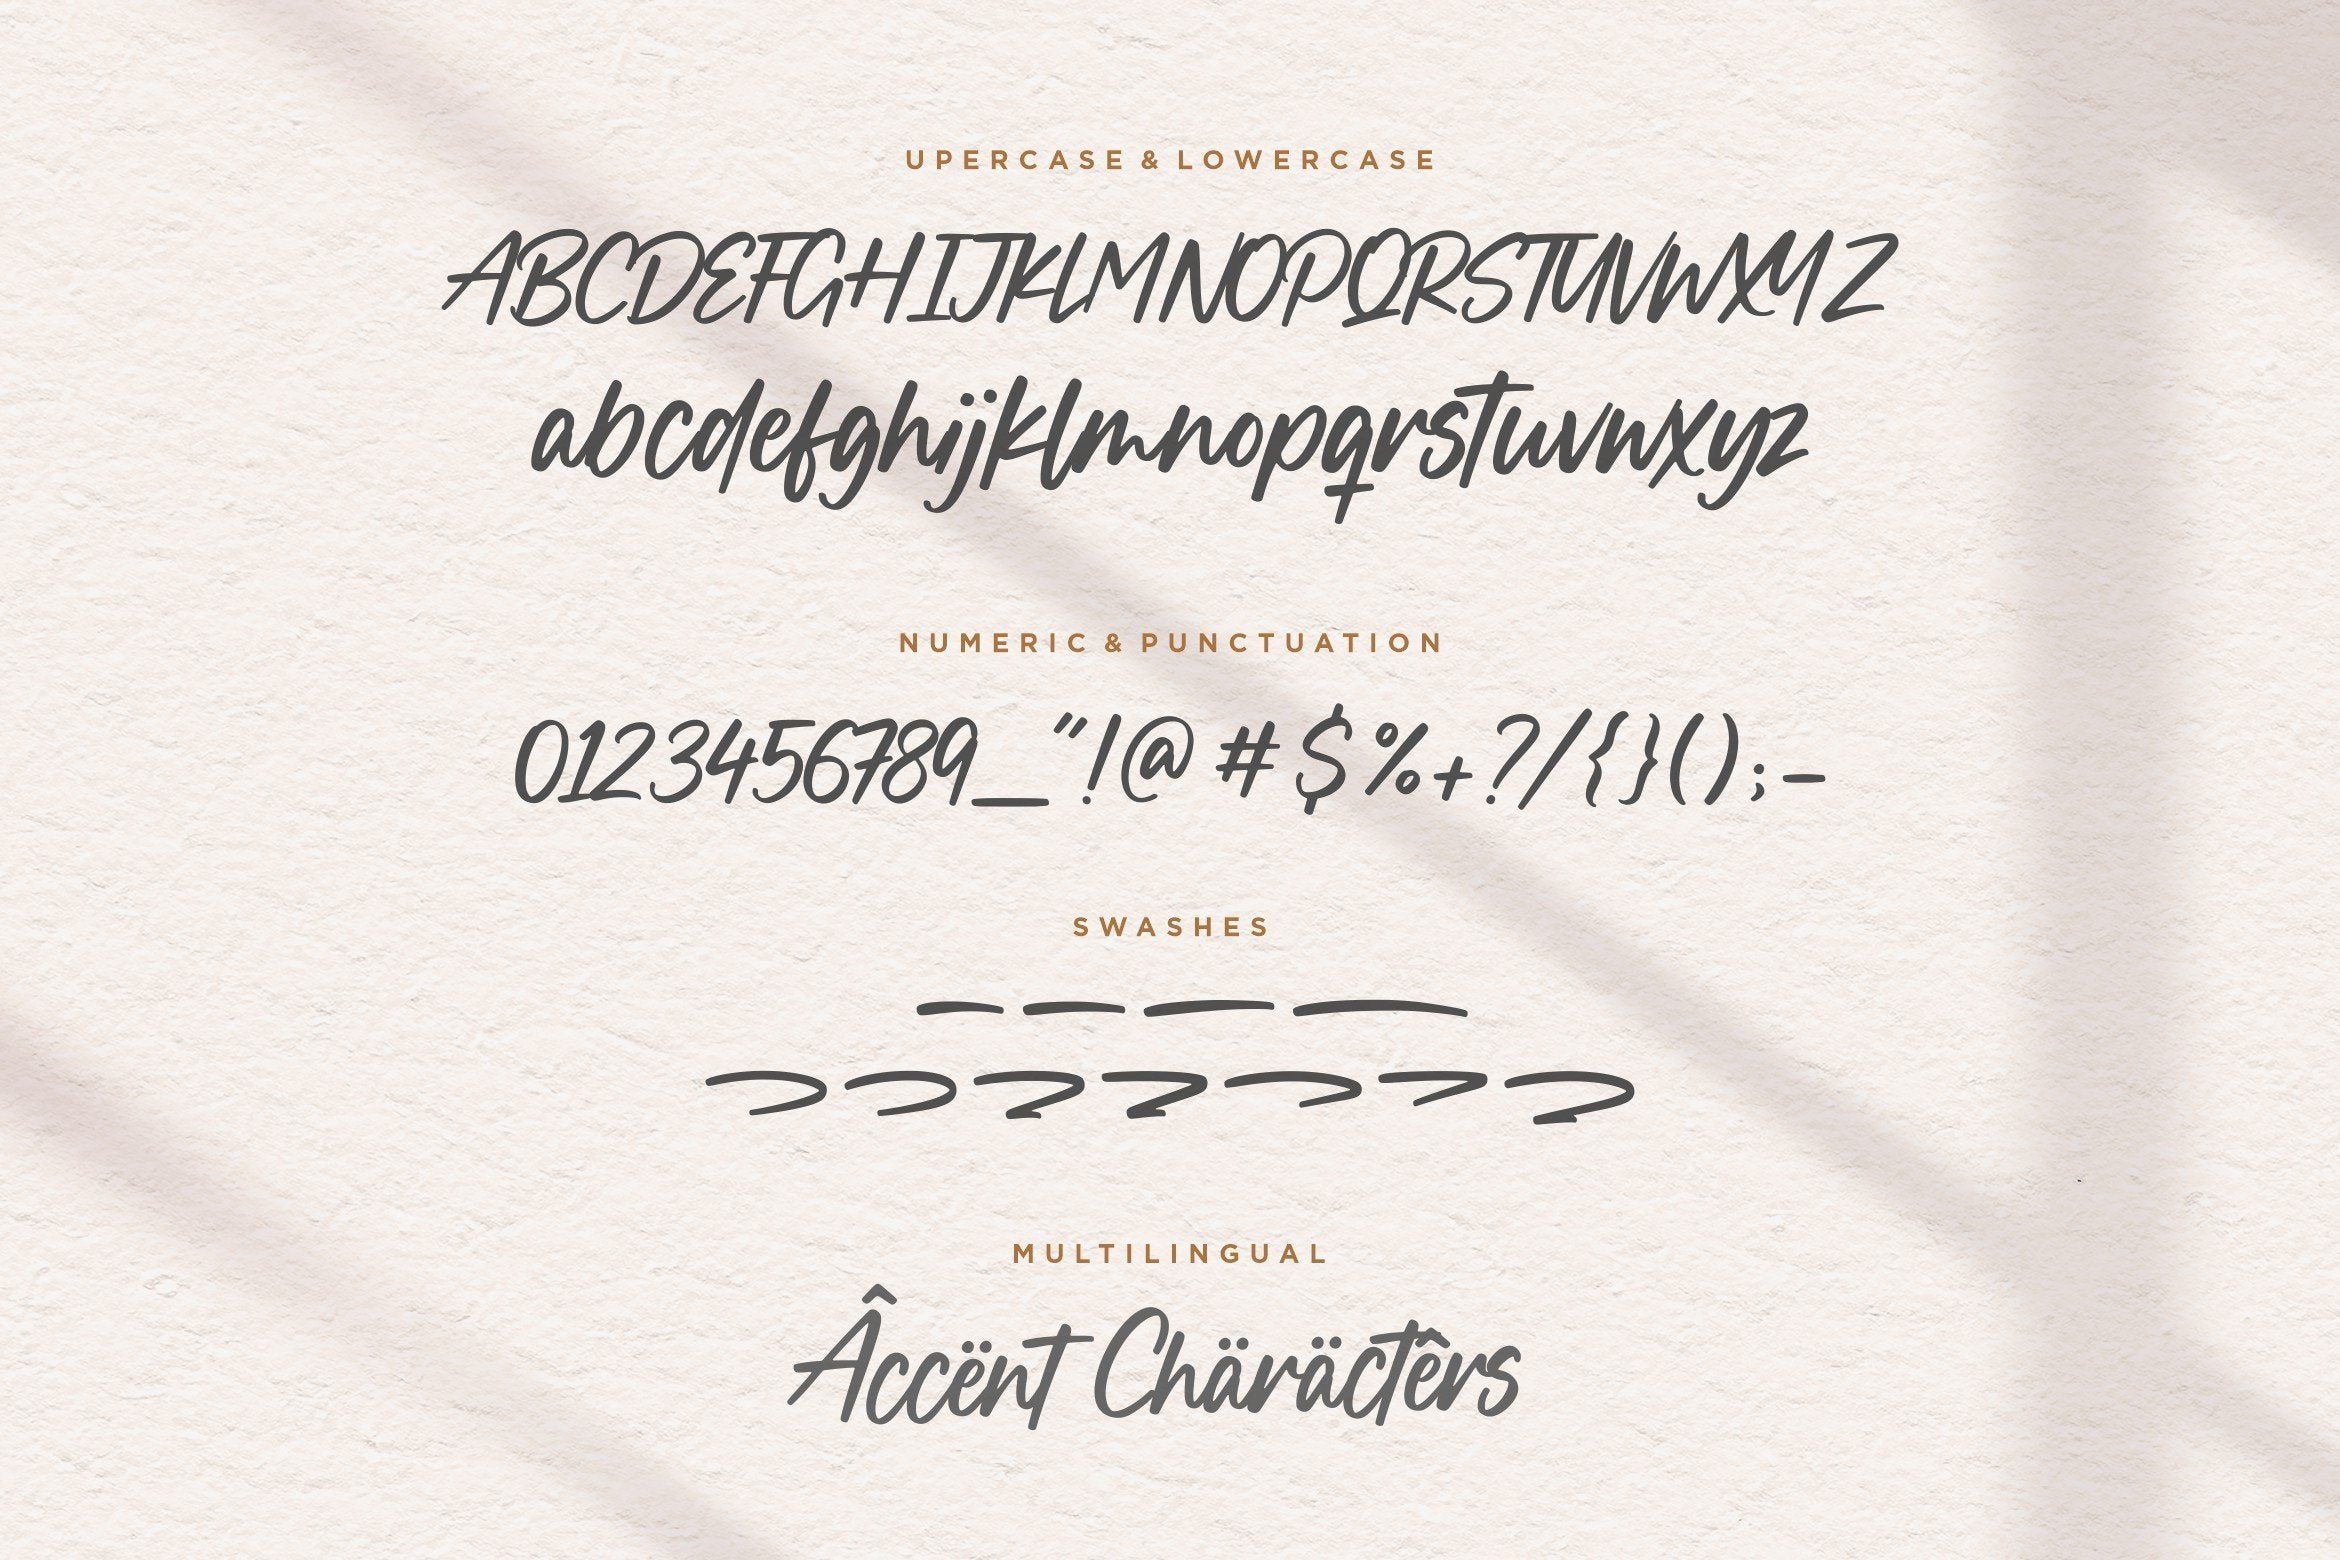 UPERCASE & LOWERCASE
ABCDEFGHIJKLMNOPQRSTUVWXYZ
abcdefghijklmnopqrstuvwxyz
NUMERIC & PUNCTUATION
0123456789_"!@#$%+?/{}();-
SWASHES
MULTILINGUAL
Âccënt Chäräctêrs